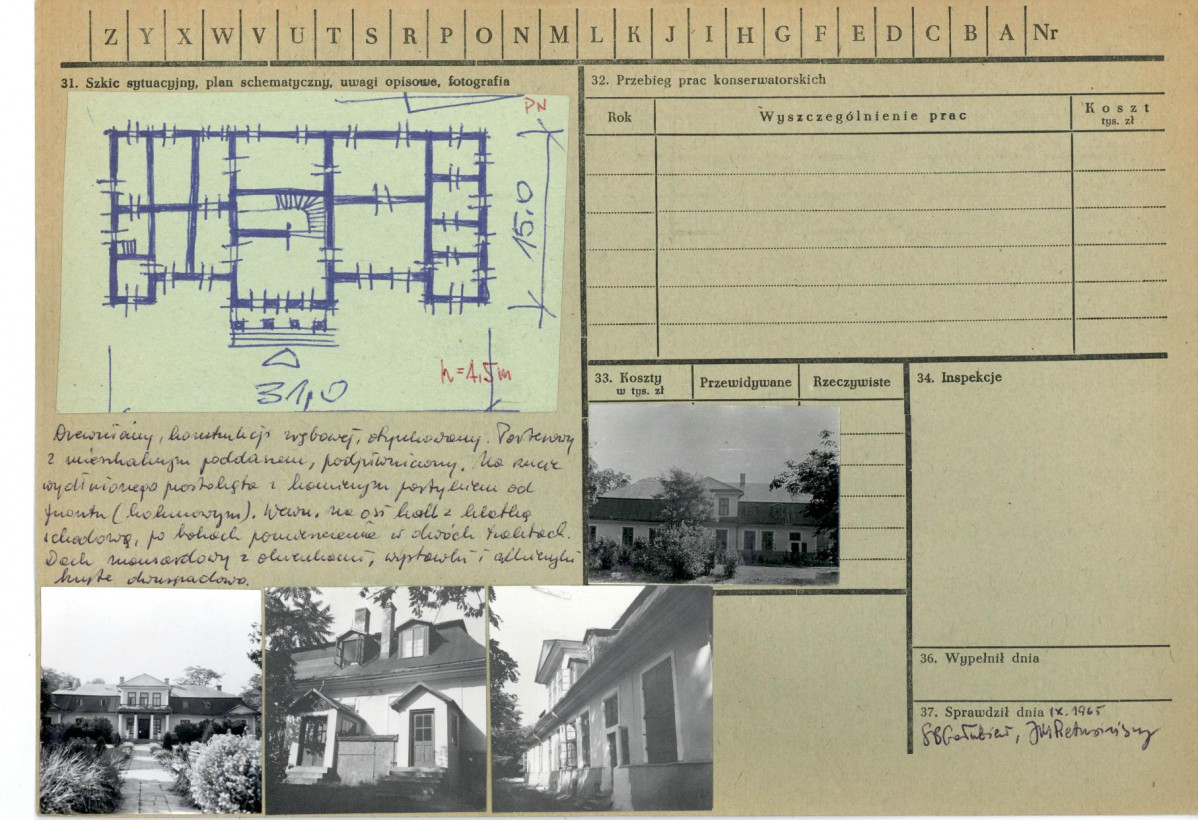 Z Y X W V U T S R P O N M L K J I H G F E D C B A Nr
31. Szkic sytuacyjny, plan schematyczny, uwagi opisowe, fotografia
PN
15,0
h = 4,5 m
31,0
Drewniany, konstrukcji zrębowej, otynkowany. Parterowy
z mieszkalnym poddaszem, podpiwniczony. Na rzucie
wydłużonego prostokąta z kolumnowym portykiem od
frontu (kolumnowym). Wewn. na osi hall z klatką
schodową, po bokach pomieszczenia w dwóch traktach.
Dach mansardowy z okienkami, wystawki i
kryte dwuspadowo.
32. Przebieg prac konserwatorskich
Rok
Wyszczególnienie prac
Koszt
tys. zł
33. Koszty
w tys. zł
Przewidywane
Rzeczywiste
34. Inspekcje
36. Wypełnił dnia
37. Sprawdził dnia IX. 1965